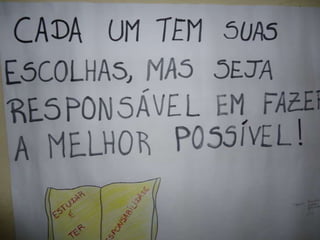 CADA UM TEM SUAS
ESCOLHAS, MAS SEJA
RESPONSÁVEL EM FAZER
A MELHOR POSSÍVEL!
ESTUDAR
É
TER
RESPONSABILIDADE